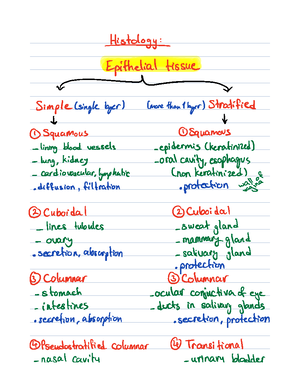 Histology:
Epithelial tissue
Simple (single layer) (more than 1 layer) Stratified
① Squamous
- lining blood vessels
- lung, kidney
- cardiovascular, lymphatic
. diffusion, filtration
① Squamous
- epidermis (keratinized)
- oral cavity, esophagus
(non keratinized)
. protection
② Cuboidal
- lines tubules
- ovary
. secretion, absorption
② Cuboidal
- sweat gland
- mammary gland
- salivary gland
. protection
③ Columnar
- stomach
- intestines
. secretion, absorption
③ Columnar
- ocular conjuctiva of eye
- ducts in salivary glands
. secretion, protection
④ Pseudostratified columnar
- nasal cavity
④ Transitional
- urinary bladder